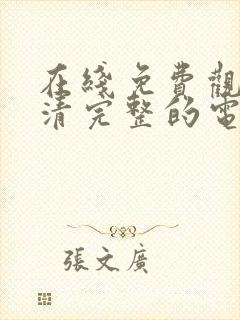 在綫免費觀
清完整的電
張文廣